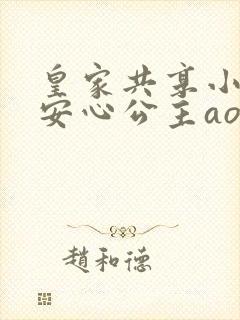 皇家共享小
安心公主ao
趙和德